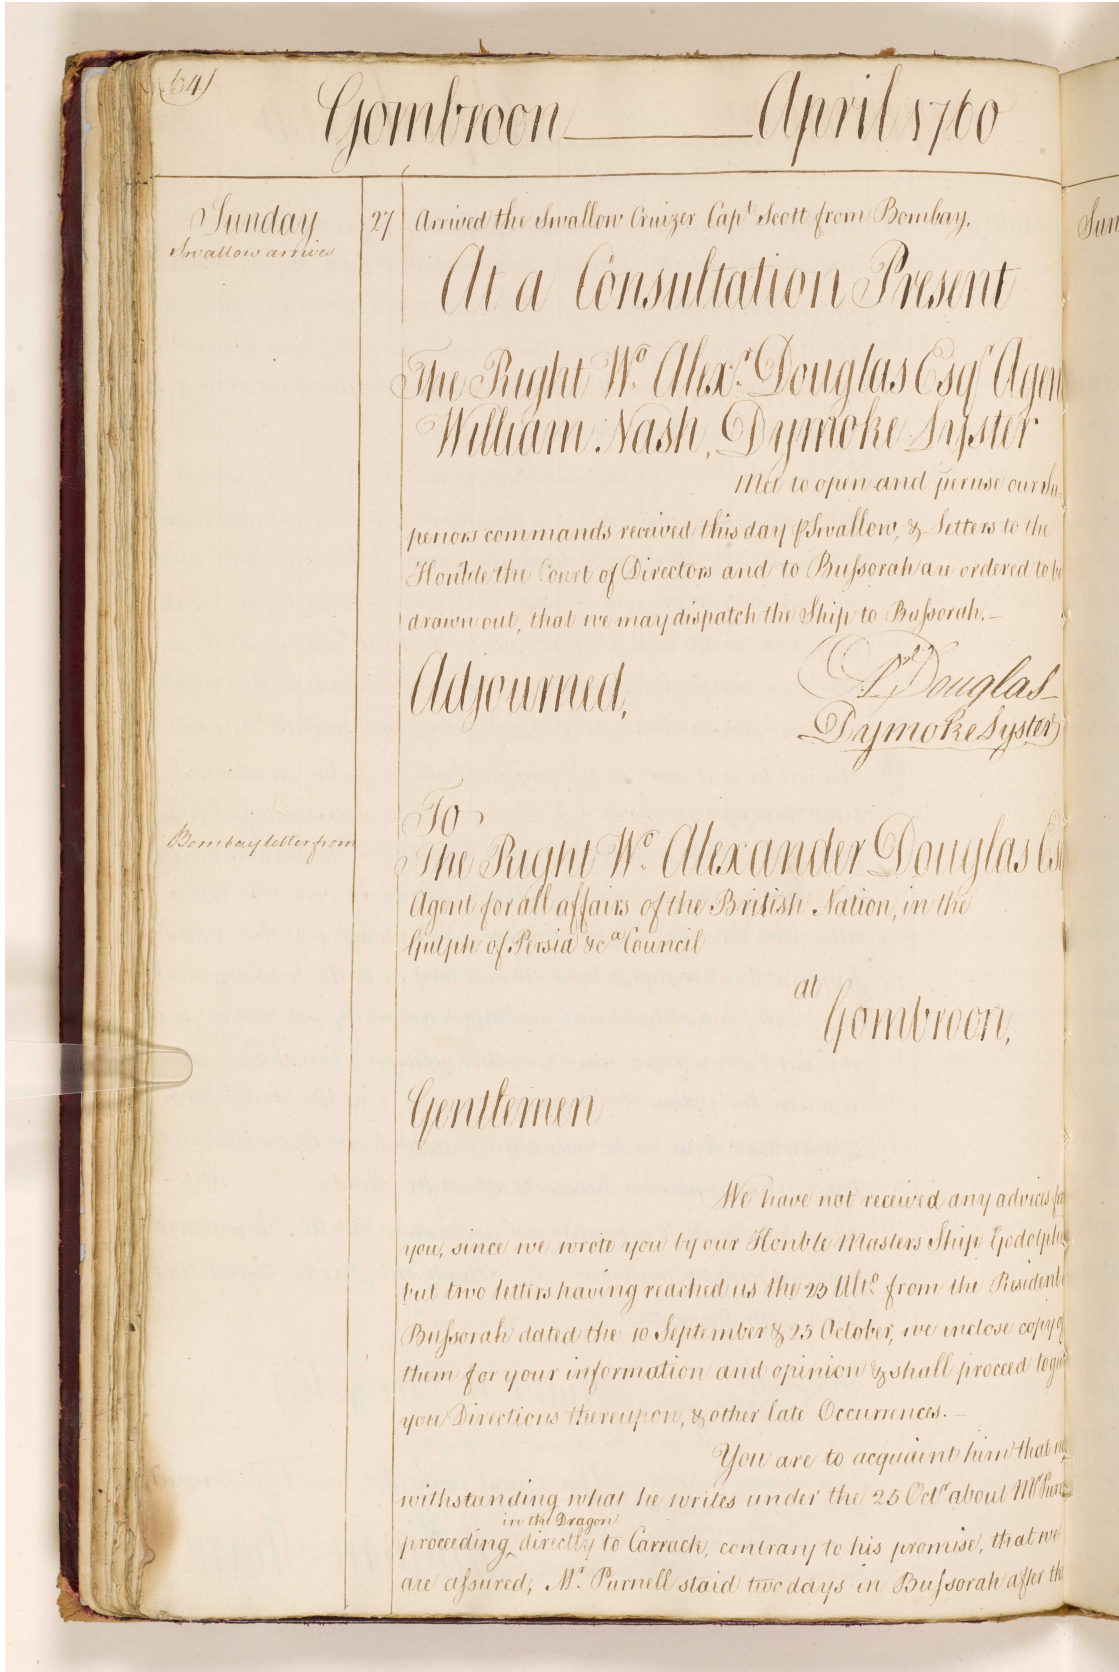 (64)
Gombroon April 1760
Sunday 27 Arrived the Swallow Cruizer Capt Scott from Bombay.
Swallow arrives
At a Consultation Present
The Right Wo. Alexr. Douglas Esqr Agen
William Nash, Dymoke Lyster
Met to open and peruse our Su
periors commands received this day ⅌ Swallow, & Letters to the
Hon'ble the Court of Directors and to Bussorah are ordered to be
drawn out, that we may dispatch the Ship to Bussorah.-
Adjourned,
Alexr Douglas
Dymoke Lyster
To
Bombay letter from
The Right Wo. Alexander Douglas Es
Agent for all affairs of the British Nation, in the
Gulph of Persia &ca Council
at
Gombroon,
Gentlemen
We have not received any advices fro
you, since we wrote you by our Honble Masters Ship Godolphi
but two letters having reached us the 23 Ulto. from the Resident
Bussorah dated the 10 September & 25 October, we inclose copy of
them for your information and opinion & shall proceed to giv
you Directions thereupon, & other late Occurrences.-
You are to acquaint him that no
withstanding what he writes under the 25 Octr about Mr Purn
in the Dragon
proceeding ^ directly to Carrack, contrary to his promise, that we
are assured, Mr. Purnell staid two days in Bussorah after th